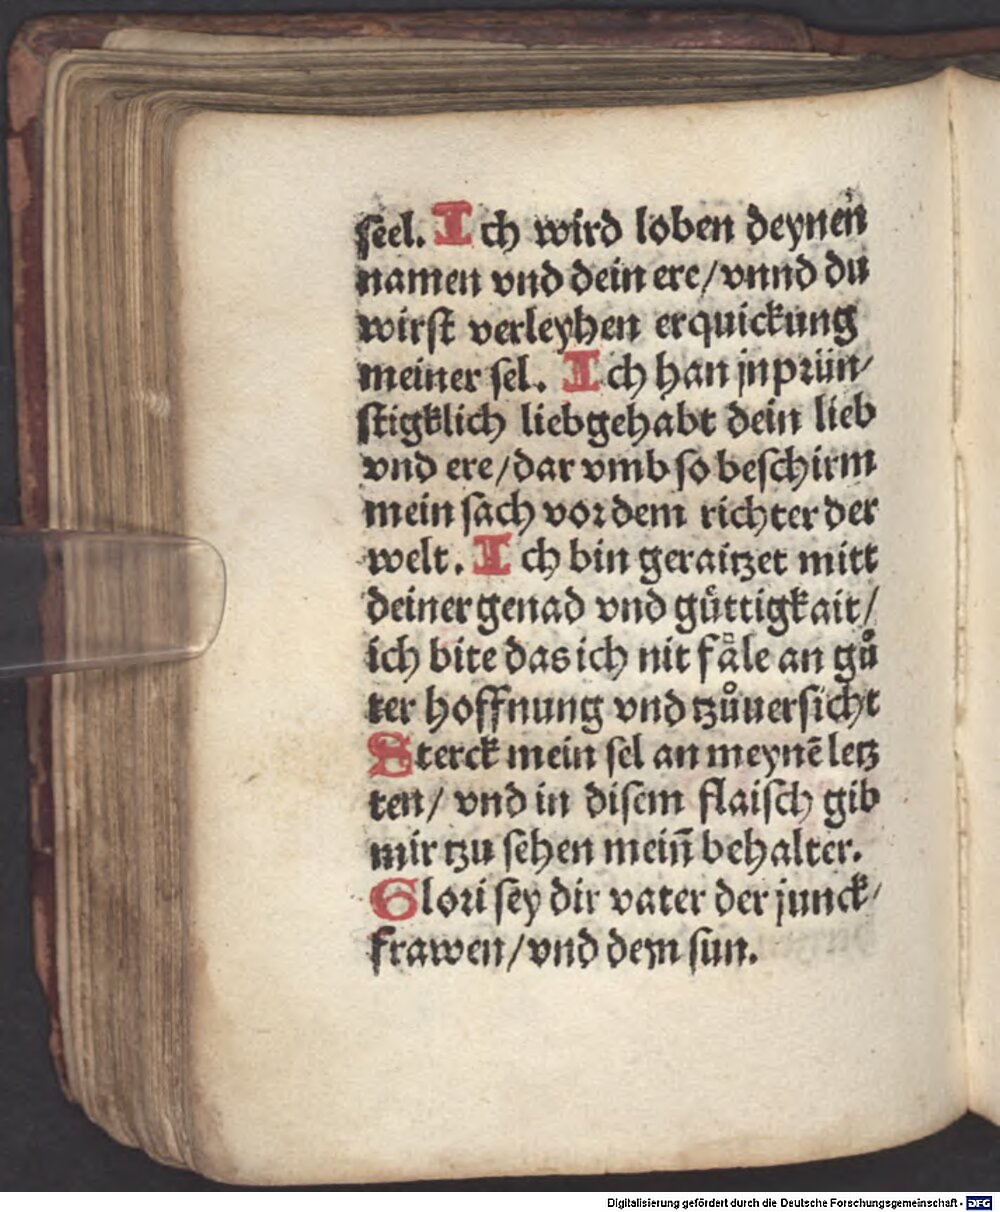 seel. Ich wird loben deynen
namen vnd dein ere/vnnd du
wirst verleyhen erquickung
meiner sel. Ich han jnprün/
stigklich liebgehabt dein lieb
vnd ere/dar vmb so beschirm
mein sach vor dem richter der
welt. Ich bin geraitzet mitt
deiner genad vnd gůttigkait/
ich bite das ich nit fåle an gů
ter hoffnung vnd tzůuersicht
Sterck mein sel an meynē letz
ten/ vnd in disem flaisch gib
mir tzu sehen mein̄ behalter.
Glori sey dir vater der junck/
frawen/vnd dem sun.
Digitalisierung gefördert durch die Deutsche Forschungsgemeinschaft - DFG